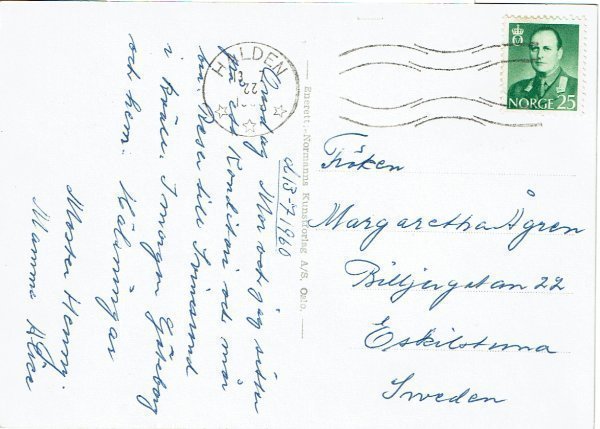 HALDEN
22
NORGE 25
d. 13-7 1960
Onsdag Mor och jag sitter
på ett Konditori och mår
bra. Resa till Svinesund
i kväll. I morgon Göteborg
och hem. Hälsningar
Moster Henny.
Mamma Alice
Enerett: Normanns Kunstforlag A/S, Oslo.
Fröken
Margaretha Ågren
Billjergatan 22
Eskilstuna
Sweden